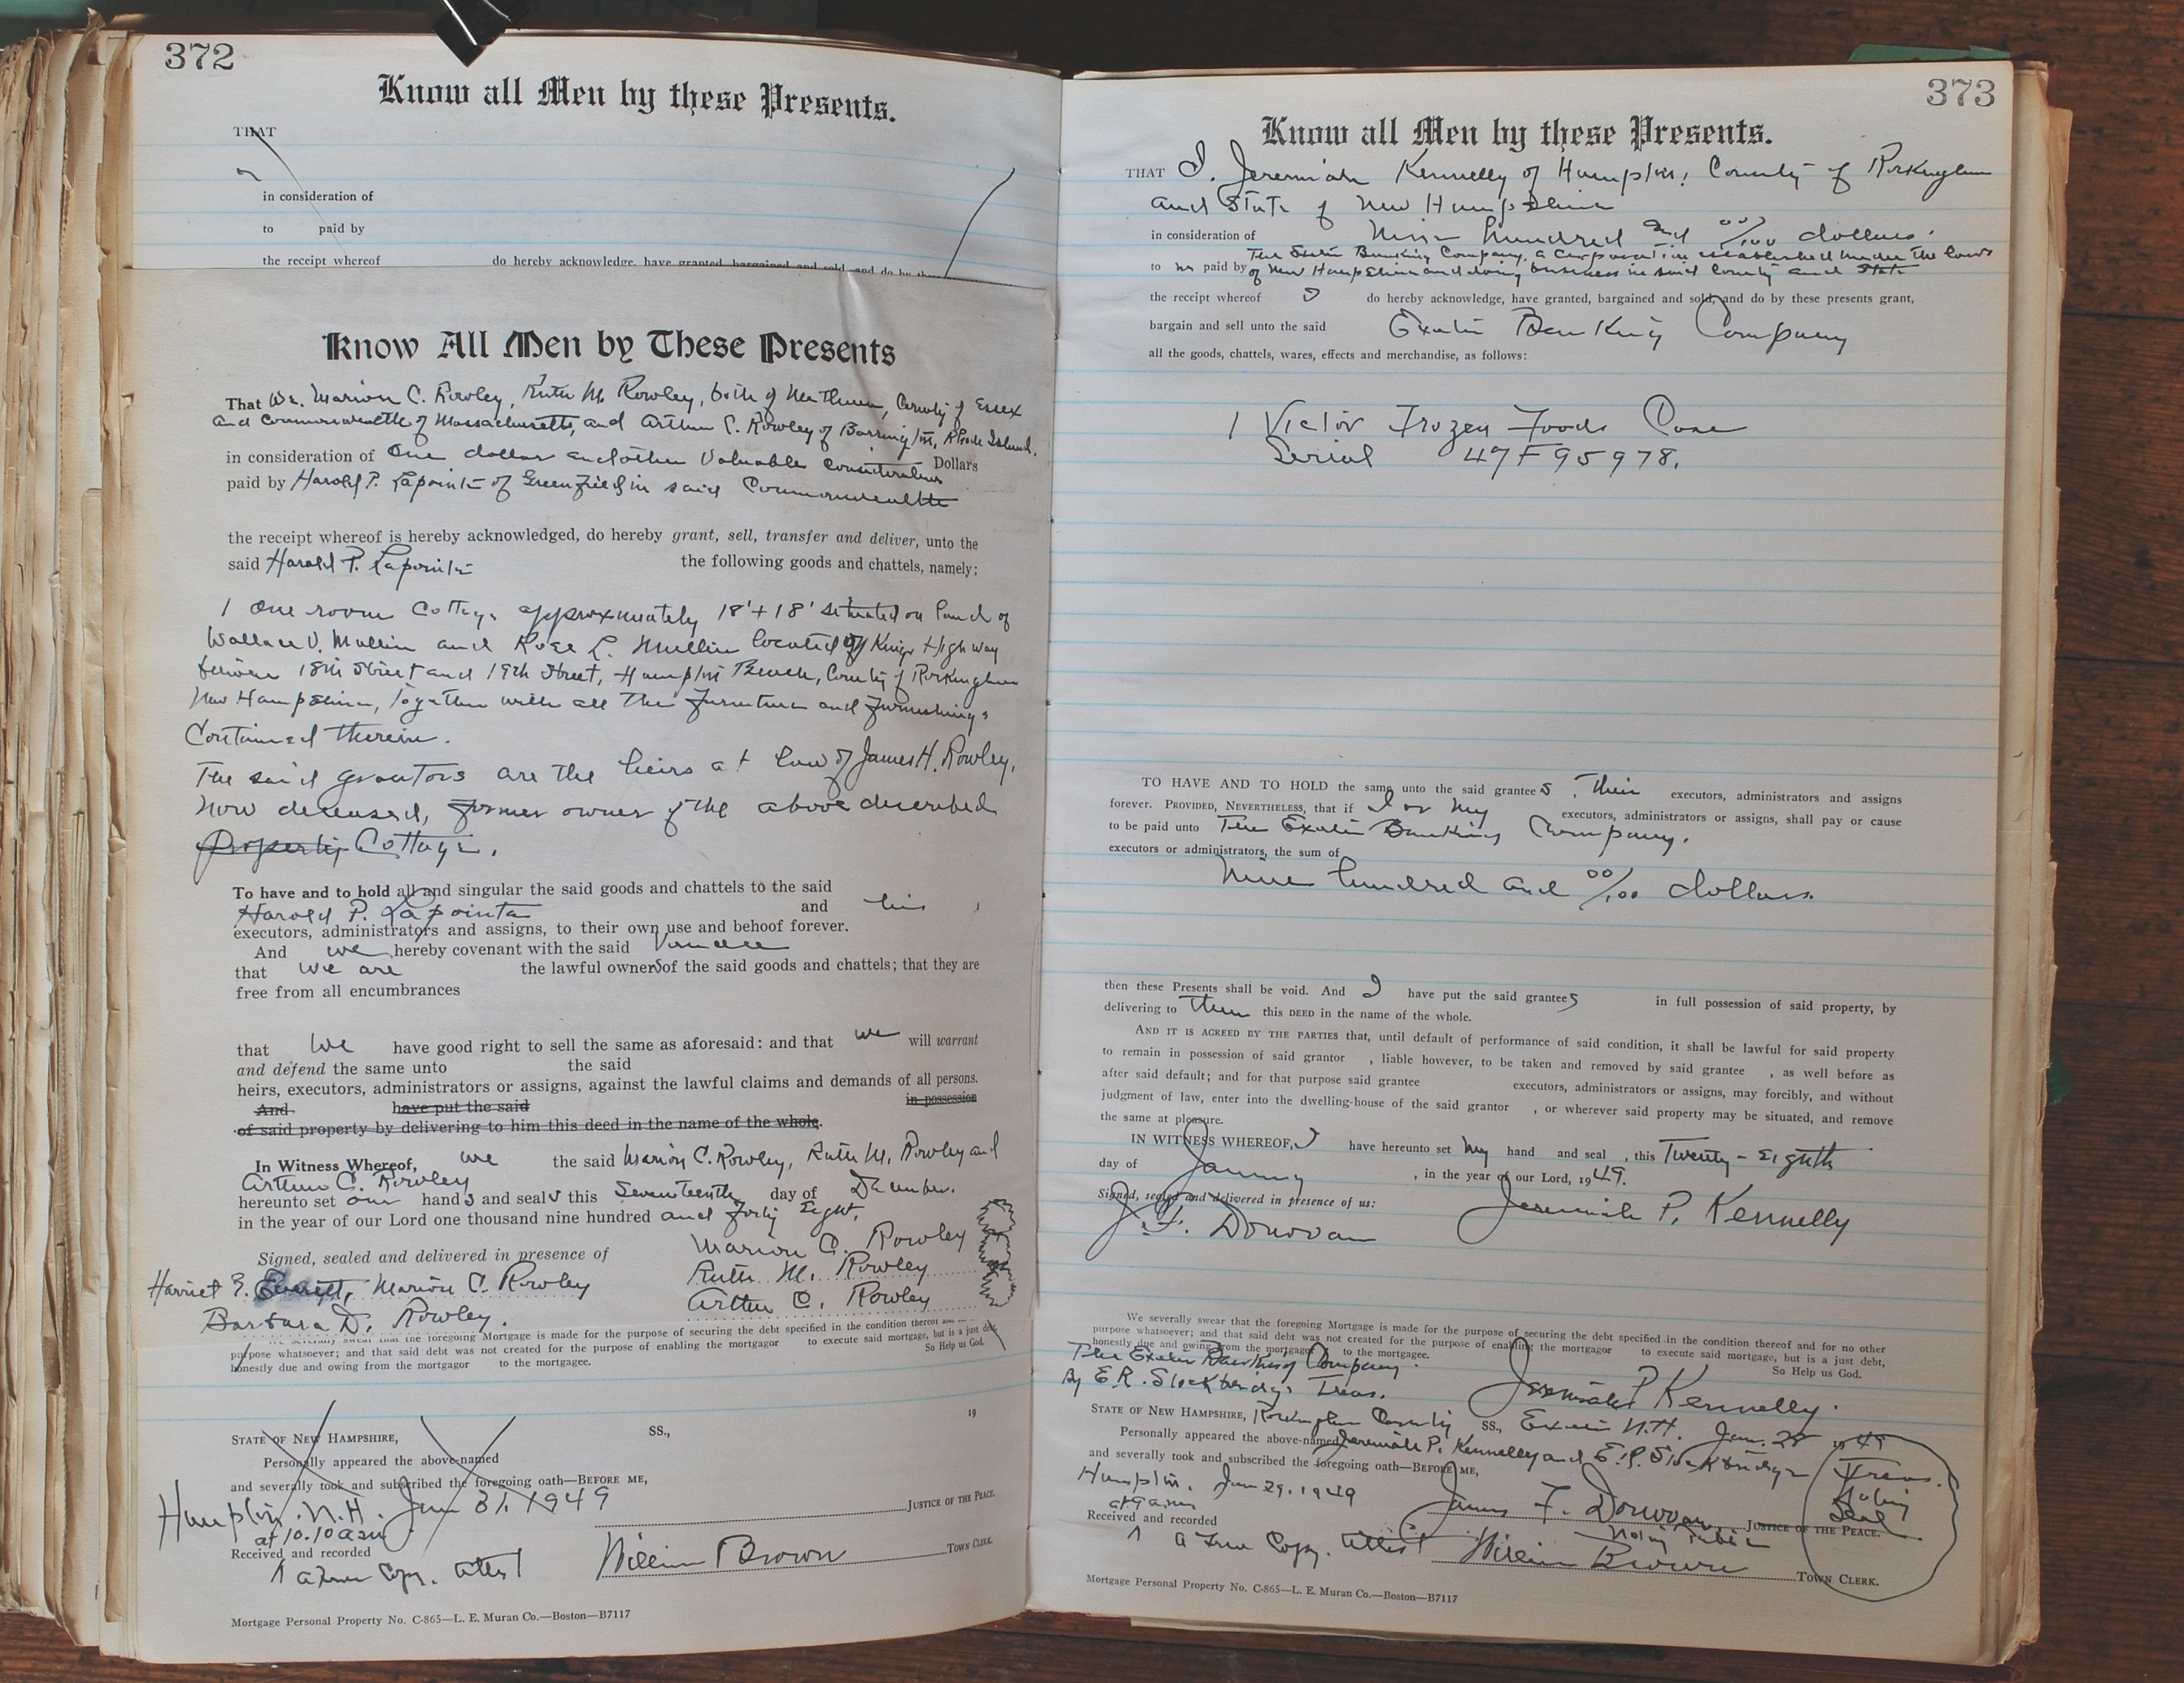 372
Know all Men by these Presents.
THAT
in consideration of
to paid by
the receipt whereof do hereby acknowledge, have granted, bargained and sold, and do by these
Know All Men by These Presents
That We, Marion C. Rowley, Ruth M. Rowley, both of Methuen, County of Essex
and Commonwealth of Massachusetts, and Arthur C. Rowley of Barrington, Rhode Island,
in consideration of One dollar and other Valuable Considerations Dollars
paid by Harold P. Lapointe of Greenfield in said Commonwealth
the receipt whereof is hereby acknowledged, do hereby grant, sell, transfer and deliver, unto the
said Harold P. Lapointe the following goods and chattels, namely;
1 One room Cottage approximately 18'+18' situated on land of
Wallace V. Mullin and Rose L. Mullin located off Kings Highway
between 18th Street and 19th Street, Hampton Beach, County of Rockingham
New Hampshire, Together with all the furniture and furnishings
Contained therein.
The said grantors are the heirs at law of James H. Rowley,
now deceased, former owner of the above described
Property Cottage.
To have and to hold all and singular the said goods and chattels to the said
Harold P. Lapointe and his ,
executors, administrators and assigns, to their own use and behoof forever.
And we hereby covenant with the said Vendee
that we are the lawful owners of the said goods and chattels; that they are
free from all encumbrances
that we have good right to sell the same as aforesaid: and that we will warrant
and defend the same unto the said
heirs, executors, administrators or assigns, against the lawful claims and demands of all persons.
And have put the said in possession
of said property by delivering to him this deed in the name of the whole.
In Witness Whereof, we the said Marion C. Rowley, Ruth M. Rowley and
Arthur C. Rowley
hereunto set our hands and seals this Seventeenth day of December.
in the year of our Lord one thousand nine hundred and forty Eight.
Signed, sealed and delivered in presence of
Marion C. Rowley
Harriet E. Everett, Marion C. Rowley Ruth M. Rowley
Barbara D. Rowley. Arthur C. Rowley
We severally swear that the foregoing Mortgage is made for the purpose of securing the debt specified in the condition thereof and
purpose whatsoever; and that said debt was not created for the purpose of enabling the mortgagor to execute said mortgage, but is a just debt,
honestly due and owing from the mortgagor to the mortgagee. So Help us God.
19
STATE OF NEW HAMPSHIRE, SS.,
Personally appeared the above-named
and severally took and subscribed the foregoing oath—BEFORE ME,
Hampton. N.H. Jan 31, 1949
JUSTICE OF THE PEACE.
at 10.10 a m
Received and recorded
A True Copy. Attest William Brown TOWN CLERK.
Mortgage Personal Property No. C-865—L. E. Muran Co.—Boston—B7117
373
Know all Men by these Presents.
THAT I, Jeremiah Kennelly of Hampton, County of Rockingham
and State of New Hampshire
in consideration of Nine hundred and 00/100 dollars.
The Exeter Banking Company, a Corporation established under the laws
to me paid by of New Hampshire and doing business in said County and State
the receipt whereof I do hereby acknowledge, have granted, bargained and sold, and do by these presents grant,
bargain and sell unto the said Exeter Banking Company
all the goods, chattels, wares, effects and merchandise, as follows:
1 Victor Frozen Foods Case
Serial 47F95978.
TO HAVE AND TO HOLD the same unto the said grantees, Their executors, administrators and assigns
forever. PROVIDED, NEVERTHELESS, that if I or my executors, administrators or assigns, shall pay or cause
to be paid unto The Exeter Banking Company.
executors or administrators, the sum of
Nine hundred and 00/100 dollars.
then these Presents shall be void. And I have put the said grantees in full possession of said property, by
delivering to them this DEED in the name of the whole.
AND IT IS AGREED BY THE PARTIES that, until default of performance of said condition, it shall be lawful for said property
to remain in possession of said grantor , liable however, to be taken and removed by said grantee , as well before as
after said default; and for that purpose said grantee executors, administrators or assigns, may forcibly, and without
judgment of law, enter into the dwelling-house of the said grantor , or wherever said property may be situated, and remove
the same at pleasure.
IN WITNESS WHEREOF, I have hereunto set my hand and seal , this Twenty-eighth
day of January , in the year of our Lord, 1949.
Signed, sealed and delivered in presence of us:
J. F. Donovan Jeremiah P. Kennelly
We severally swear that the foregoing Mortgage is made for the purpose of securing the debt specified in the condition thereof and for no other
purpose whatsoever; and that said debt was not created for the purpose of enabling the mortgagor to execute said mortgage, but is a just debt,
honestly due and owing from the mortgagor to the mortgagee. So Help us God.
The Exeter Banking Company.
By E.R. Stockbridge Treas. Jeremiah P Kennelly.
STATE OF NEW HAMPSHIRE, Rockingham County SS., Exeter N.H. Jan. 28 1949
Personally appeared the above-named Jeremiah P. Kennelly and E.R. Stockbridge Treas.
and severally took and subscribed the foregoing oath—BEFORE ME,
Hampton, Jan 29, 1949
Notary
Seal
at 9 a m James F. Donovan JUSTICE OF THE PEACE.
Notary Public
Received and recorded
A True Copy. Attest William Brown TOWN CLERK.
Mortgage Personal Property No. C-865—L. E. Muran Co.—Boston—B7117